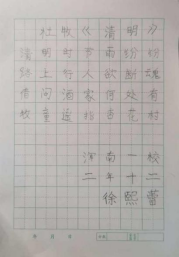 杜牧《清明》
清明时节雨纷纷
路上行人欲断魂
借问酒家何处有
牧童遥指杏花村
南一校
二年十二
徐熙蕾